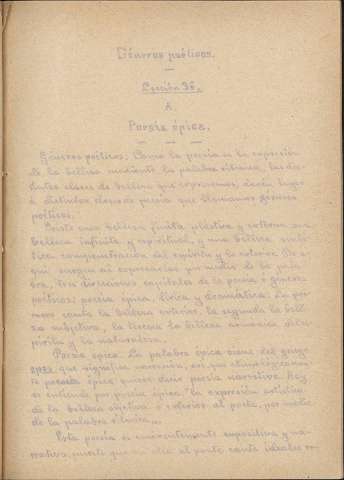 Géneros poéticos.
Lección 36.
A
Poesía épica.
Géneros poéticos. Como la poesía es la expresión
de la belleza mediante la palabra rítmica, las dis-
tintas clases de belleza que expresemos, darán lugar
á distintas clases de poesía que llamamos géneros
poéticos.
Existe una belleza finita, plástica y externa, una
belleza infinita y espiritual, y una belleza
compenetración del espíritu y lo exterior. De a-
quí surgen al expresarlas por medio de la pala-
bra, tres divisiones capitales de la poesía ó géneros
poéticos: poesía épica, lírica y dramática. La pri-
mera canta la belleza exterior, la segunda la belle-
za subjetiva, la tercera la belleza armónica del es-
píritu y la naturaleza.
Poesía épica. La palabra épica viene del griego
que significa narrar, así, que etimológicamen-
te poesía épica quiere decir poesía narrativa. Hoy
se entiende por poesía épica, la expresión artística
de la belleza objetiva ó exterior al poeta, por medio
de la palabra rítmica.
Esta poesía es eminentemente expositiva y na-
rrativa, puesto que en ella el poeta canta ideales